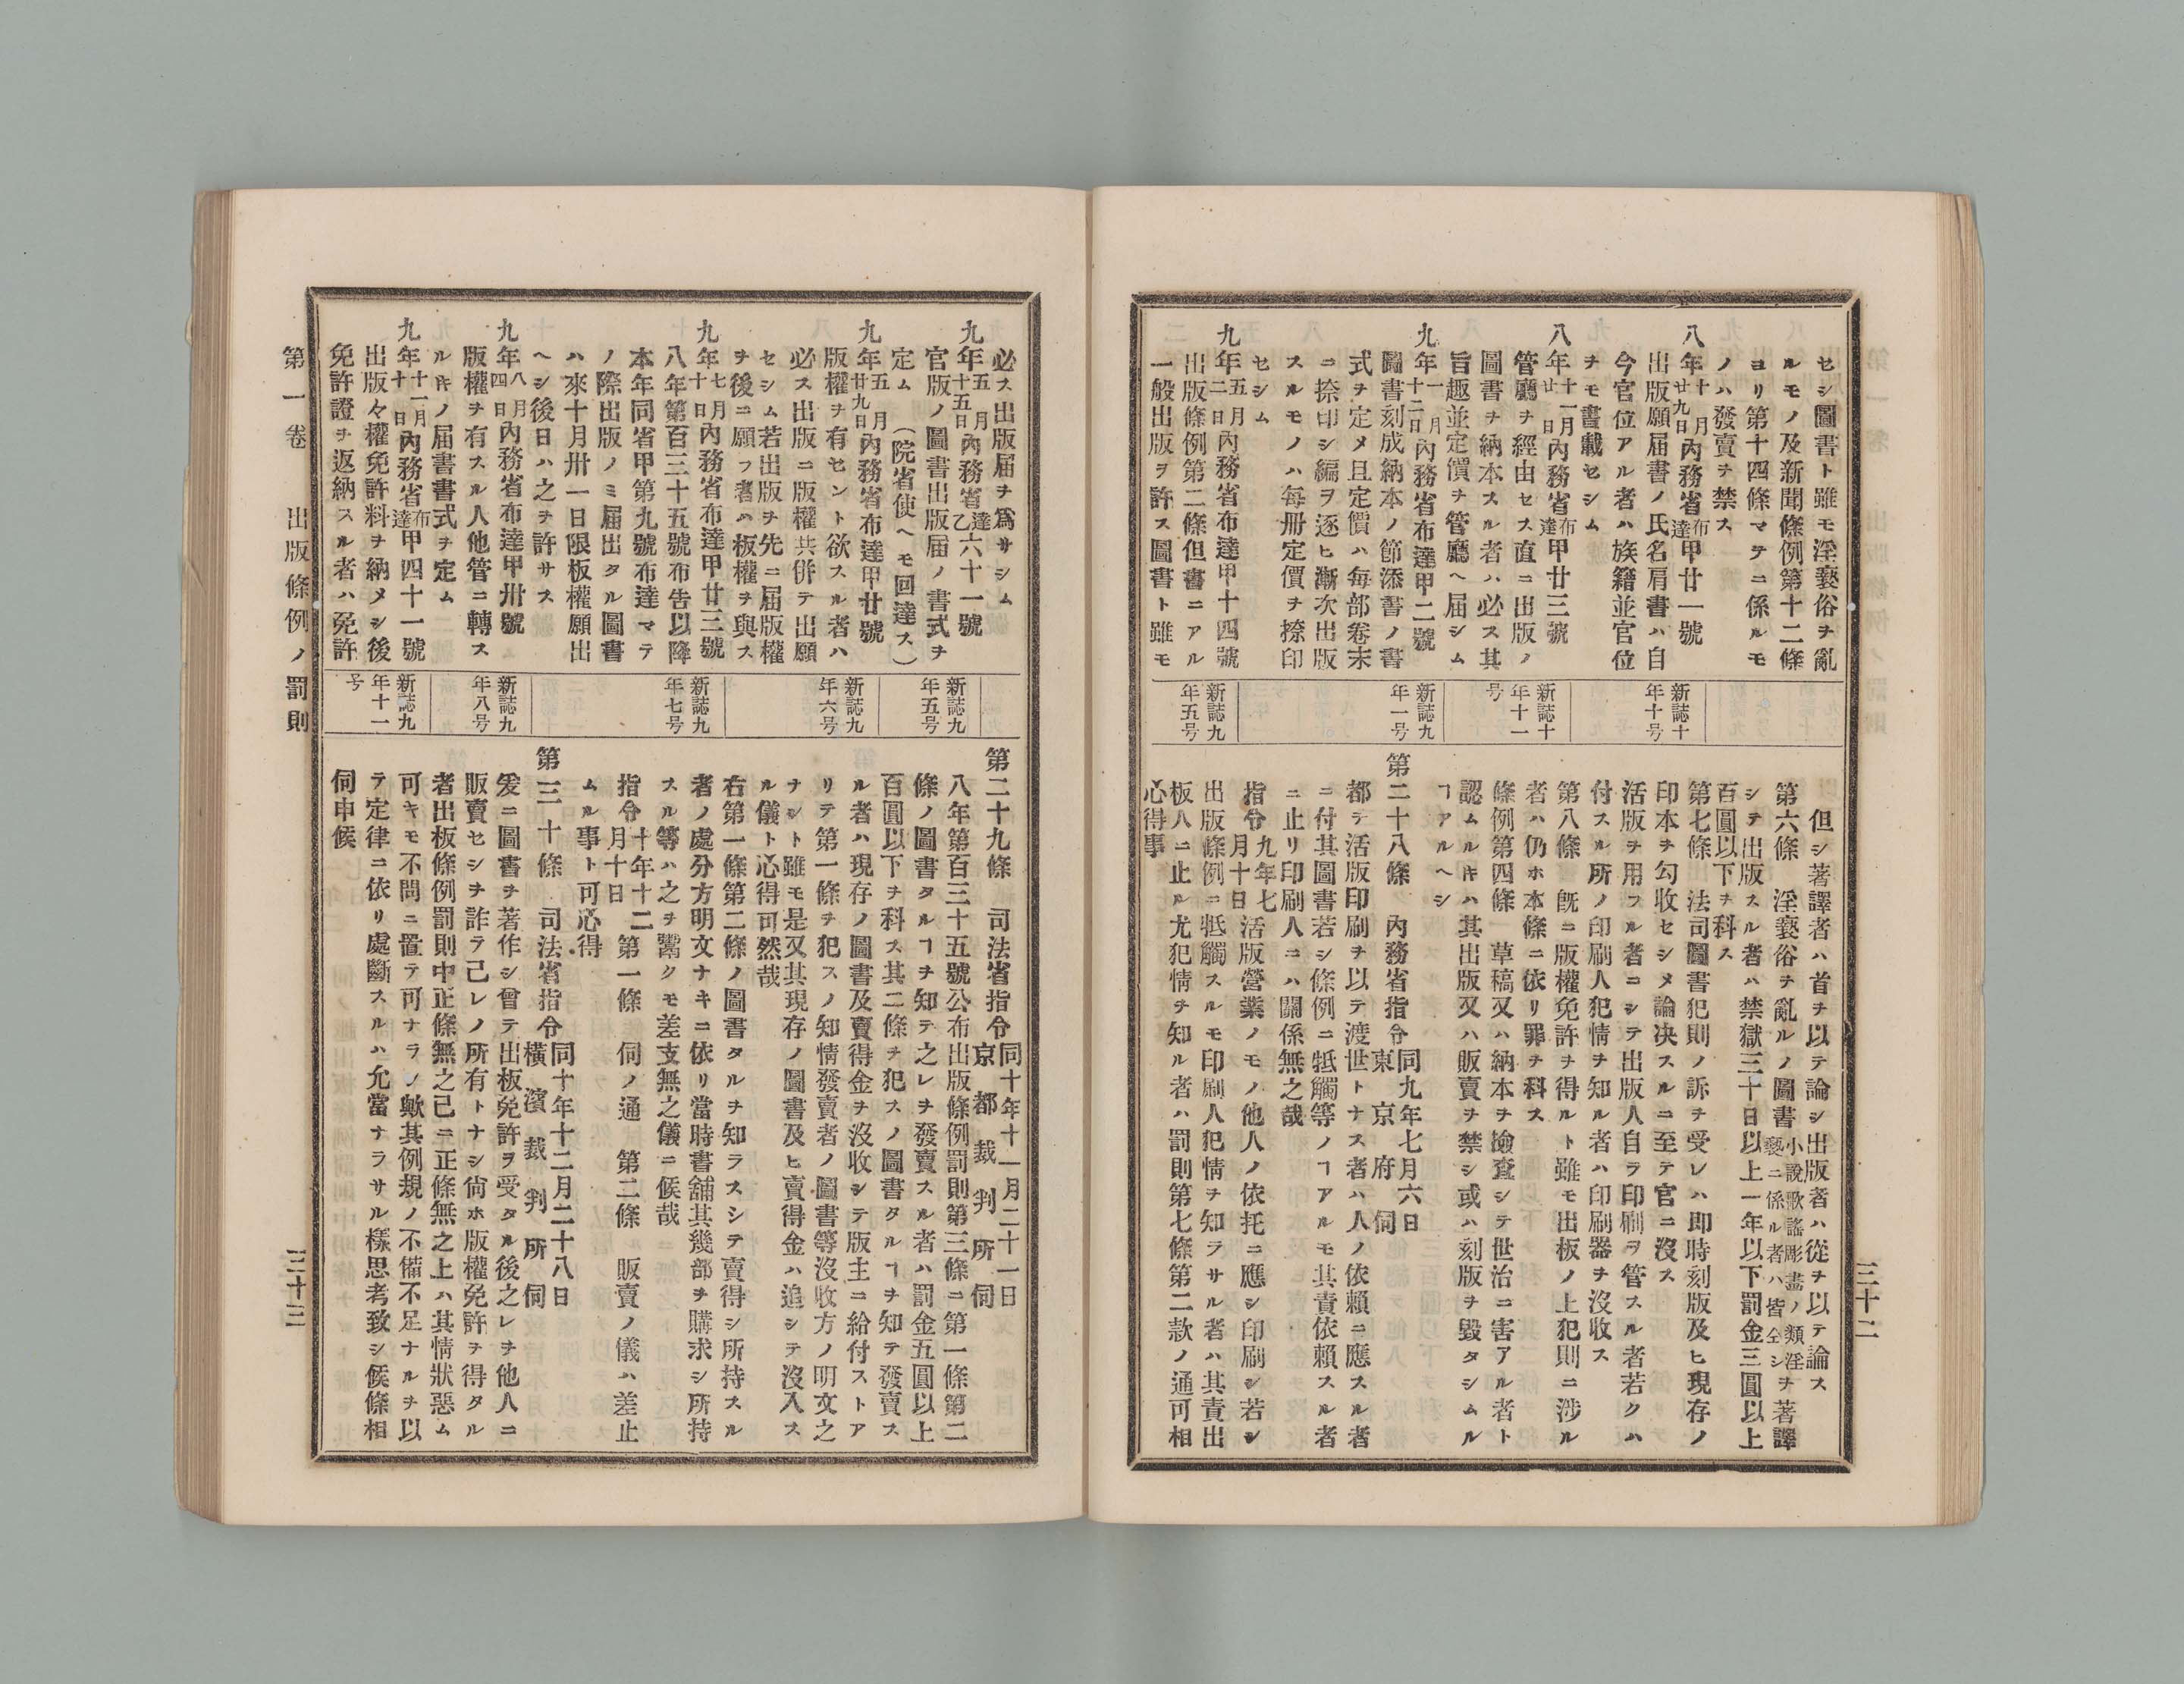 セシ圖書ト雖モ淫褻俗ヲ亂
ルモノ及新聞條例第十二條
ヨリ第十四條マテニ係ルモ
ノハ發賣ヲ禁ス
八年十月廿九日內務省布達甲廿一號
出版願届書ノ氏名肩書ハ自
今官位アル者ハ族籍並官位
ヲモ書載セシム
八年十一月廿日內務省布達甲廿三號
管廳ヲ經由セス直ニ出版ノ
圖書ヲ納本スル者ハ必ス其
旨趣並定價ヲ管廳ヘ届シム
九年一月十二日內務省布達甲二號
圖書刻成納本ノ節添書ノ書
式ヲ定メ且定價ハ每部卷末
ニ捺印シ編ヲ逐ヒ漸次出版
スルモノハ每册定價ヲ捺印
セシム
九年五月二日內務省布達甲十四號
出版條例第二條但書ニアル
一般出版ヲ許ス圖書ト雖モ
新誌十
年十号
新誌十
年十一
号
新誌九
年一号
新誌九
年五号
但シ著譯者ハ首ヲ以テ論シ出版者ハ從ヲ以テ論ス
第六條　淫褻俗ヲ亂ルノ圖書小說歌謠彫畫ノ類淫褻ニ係ル者ハ皆仝シヲ著譯
シテ出版スル者ハ禁獄三十日以上一年以下罰金三圓以上
百圓以下ヲ科ス
第七條　法司圖書犯則ノ訴ヲ受レハ即時刻版及ヒ現存ノ
印本ヲ勾收セシメ論决スルニ至テ官ニ沒ス
活版ヲ用フル者ニシテ出版人自ラ印刷ヲ管スル者若クハ
付スル所ノ印刷人犯情ヲ知ル者ハ印刷器ヲ沒收ス
第八條　旣ニ版權免許ヲ得ルト雖モ出板ノ上犯則ニ涉ル
者ハ仍ホ本條ニ依リ罪ヲ科ス
條例第四條　草稿又ハ納本ヲ撿查シテ世治ニ害アル者ト
認ムルキハ其出版又ハ販賣ヲ禁シ或ハ刻版ヲ毀タシムル
ヿアルヘシ
第二十八條　內務省指令同九年七月六日東京府伺
都テ活版印刷ヲ以テ渡世トナス者ハ人ノ依賴ニ應スル者
ニ付其圖書若シ條例ニ牴觸等ノヿアルモ其責依賴スル者
ニ止リ印刷人ニハ關係無之哉
指令九年七月十日活版營業ノモノ他人ノ依托ニ應シ印刷シ若シ
出版條例ニ牴觸スルモ印刷人犯情ヲ知ラサル者ハ其責出
板人ニ止ル尤犯情ヲ知ル者ハ罰則第七條第二款ノ通可相
心得事
三十二
必ス出版届ヲ爲サシム
九年五月十五日內務省達乙六十一號
官版ノ圖書出版届ノ書式ヲ
定ム（院省使ヘモ回達ス）
九年五月廿九日內務省布達甲廿號
版權ヲ有セント欲スル者ハ
必ス出版ニ版權共併テ出願
セシム若出版ヲ先ニ届版權
ヲ後ニ願フ者ハ板權ヲ與ス
九年七月十日內務省布達甲廿三號
八年第百三十五號布告以降
本年同省甲第九號布達マテ
ノ際出版ノミ届出タル圖書
ハ來十月卅一日限板權願出
ヘシ後日ハ之ヲ許サス
九年八月四日內務省布達甲卅號
版權ヲ有スル人他管ニ轉ス
ルキノ届書書式ヲ定ム
九年十一月十日內務省布達甲四十一號
出版々權免許料ヲ納メシ後
免許證ヲ返納スル者ハ免許
新誌九
年五号
新誌九
年六号
新誌九
年七号
新誌九
年八号
新誌九
年十一
号
第二十九條　司法省指令同十年十一月二十一日京都裁判所伺
八年第百三十五號公布出版條例罰則第三條ニ第一條第二
條ノ圖書タルヿヲ知テ之レヲ發賣スル者ハ罰金五圓以上
百圓以下ヲ科ス其二條ヲ犯スノ圖書タルヿヲ知テ發賣ス
ル者ハ現存ノ圖書及賣得金ヲ沒收シテ版主ニ給付ストア
リテ第一條ヲ犯スノ知情發賣者ノ圖書等沒收方ノ明文之
ナシト雖モ是又其現存ノ圖書及ヒ賣得金ハ追シテ沒入ス
ル儀ト心得可然哉
右第一條第二條ノ圖書タルヲ知ラスシテ賣得シ所持スル
者ノ處分方明文ナキニ依リ當時書舖其幾部ヲ購求シ所持
スル等ハ之ヲ鬻クモ差支無之儀ニ候哉
指令十年十二月十日第一條　伺ノ通　第二條　販賣ノ儀ハ差止
ムル事ト可心得
第三十條　司法省指令同十年十二月二十八日橫濱裁判所伺
爰ニ圖書ヲ著作シ曾テ出板免許ヲ受タル後之レヲ他人ニ
販賣セシヲ詐テ己レノ所有トナシ尙ホ版權免許ヲ得タル
者出板條例罰則中正條無之己ニ正條無之上ハ其情狀惡ム
可キモ不問ニ置テ可ナラン歟其例規ノ不備不足ナルヲ以
テ定律ニ依リ處斷スルハ允當ナラサル樣思考致シ候條相
伺申候
第一卷　出版條例ノ罰則
三十三